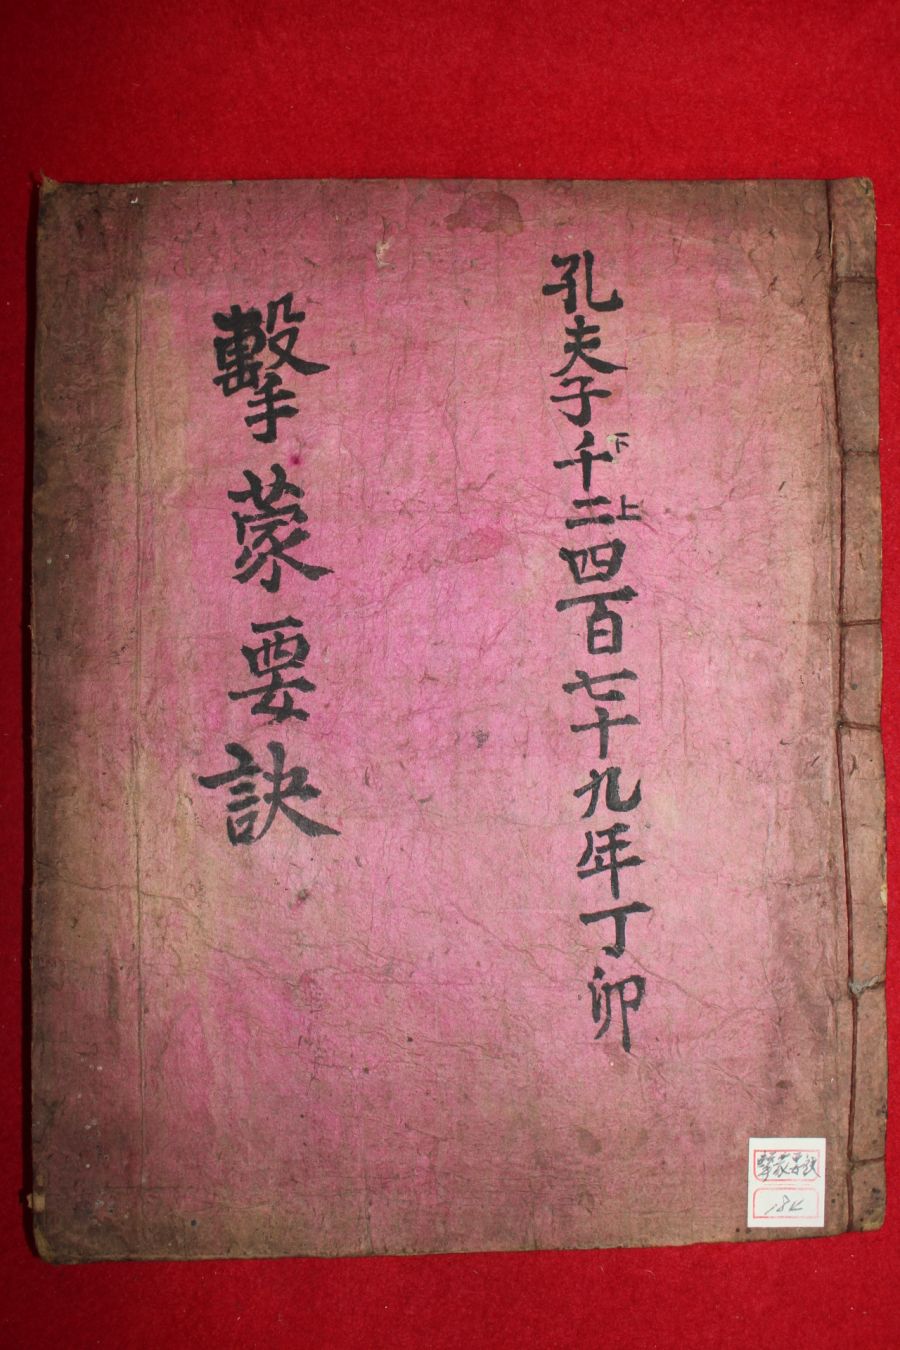 孔夫子千下二上四百七十九年丁卯
擊蒙要訣
擊蒙要訣